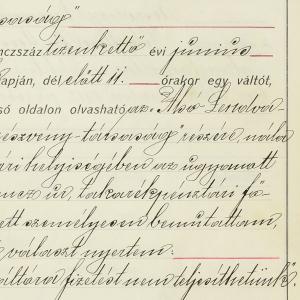 saság"
nczszáz tizenkettő évi június
apján, dél előtt 11. órakor egy váltót,
só oldalon olvasható az "Alsó Lendva-
észvény-társaság részére, nála
ári helyiségében az ugyanott
encz úr, takarékpénztári fő-
ett személyesen bemutattam,
választ nyertem:
általa fizetést nem teljesíthetünk".